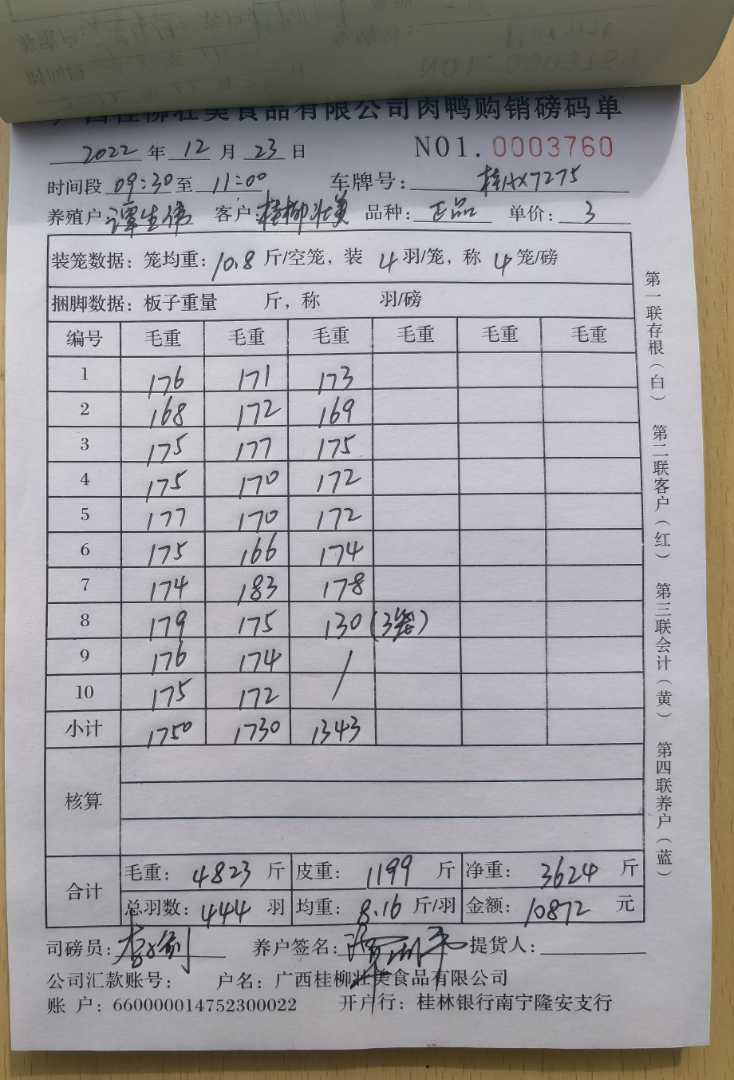 广西桂柳壮美食品有限公司肉鸭购销磅码单
2022 年 12 月 23 日 NO1. 0003760
时间段 09:30 至 11:00 车牌号: 桂AX7275
养殖户: 谭生伟 客户: 桂柳壮美 品种: 正品 单价: 3
装笼数据: 笼均重: 10.8 斤/空笼, 装 4 羽/笼, 称 4 笼/磅
捆脚数据: 板子重量 斤, 称 羽/磅
编号 毛重 毛重 毛重 毛重 毛重 毛重
1 176 171 173
2 168 172 169
3 175 177 175
4 175 170 172
5 177 170 172
6 175 166 174
7 174 183 178
8 179 175 130 (3笼)
9 176 174 /
10 175 172
小计 1750 1730 1343
核算
合计 毛重: 4823 斤 皮重: 1199 斤 净重: 3624 斤
总羽数: 444 羽 均重: 8.16 斤/羽 金额: 10872 元
司磅员: 养户签名: 提货人:
公司汇款账号: 户名: 广西桂柳壮美食品有限公司
账 户: 660000014752300022 开户行: 桂林银行南宁隆安支行
第一联存根(白) 第二联客户(红) 第三联会计(黄) 第四联养户(蓝)